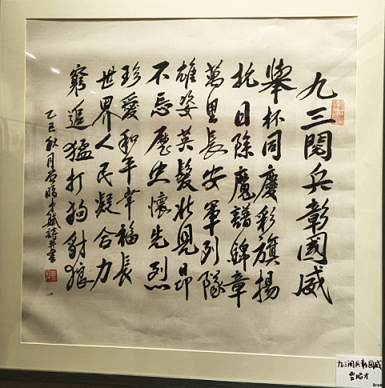 九三閱兵彰國威
舉杯同慶彩旗揚
抗日除魔譜錦章
萬里長安軍列隊
雄姿英發壯見昂
不忘歷史懷先烈
珍愛和平幸福長
世界人民凝合力
窮追猛打豺狼
乙巳秋月
九三阅兵彰國威